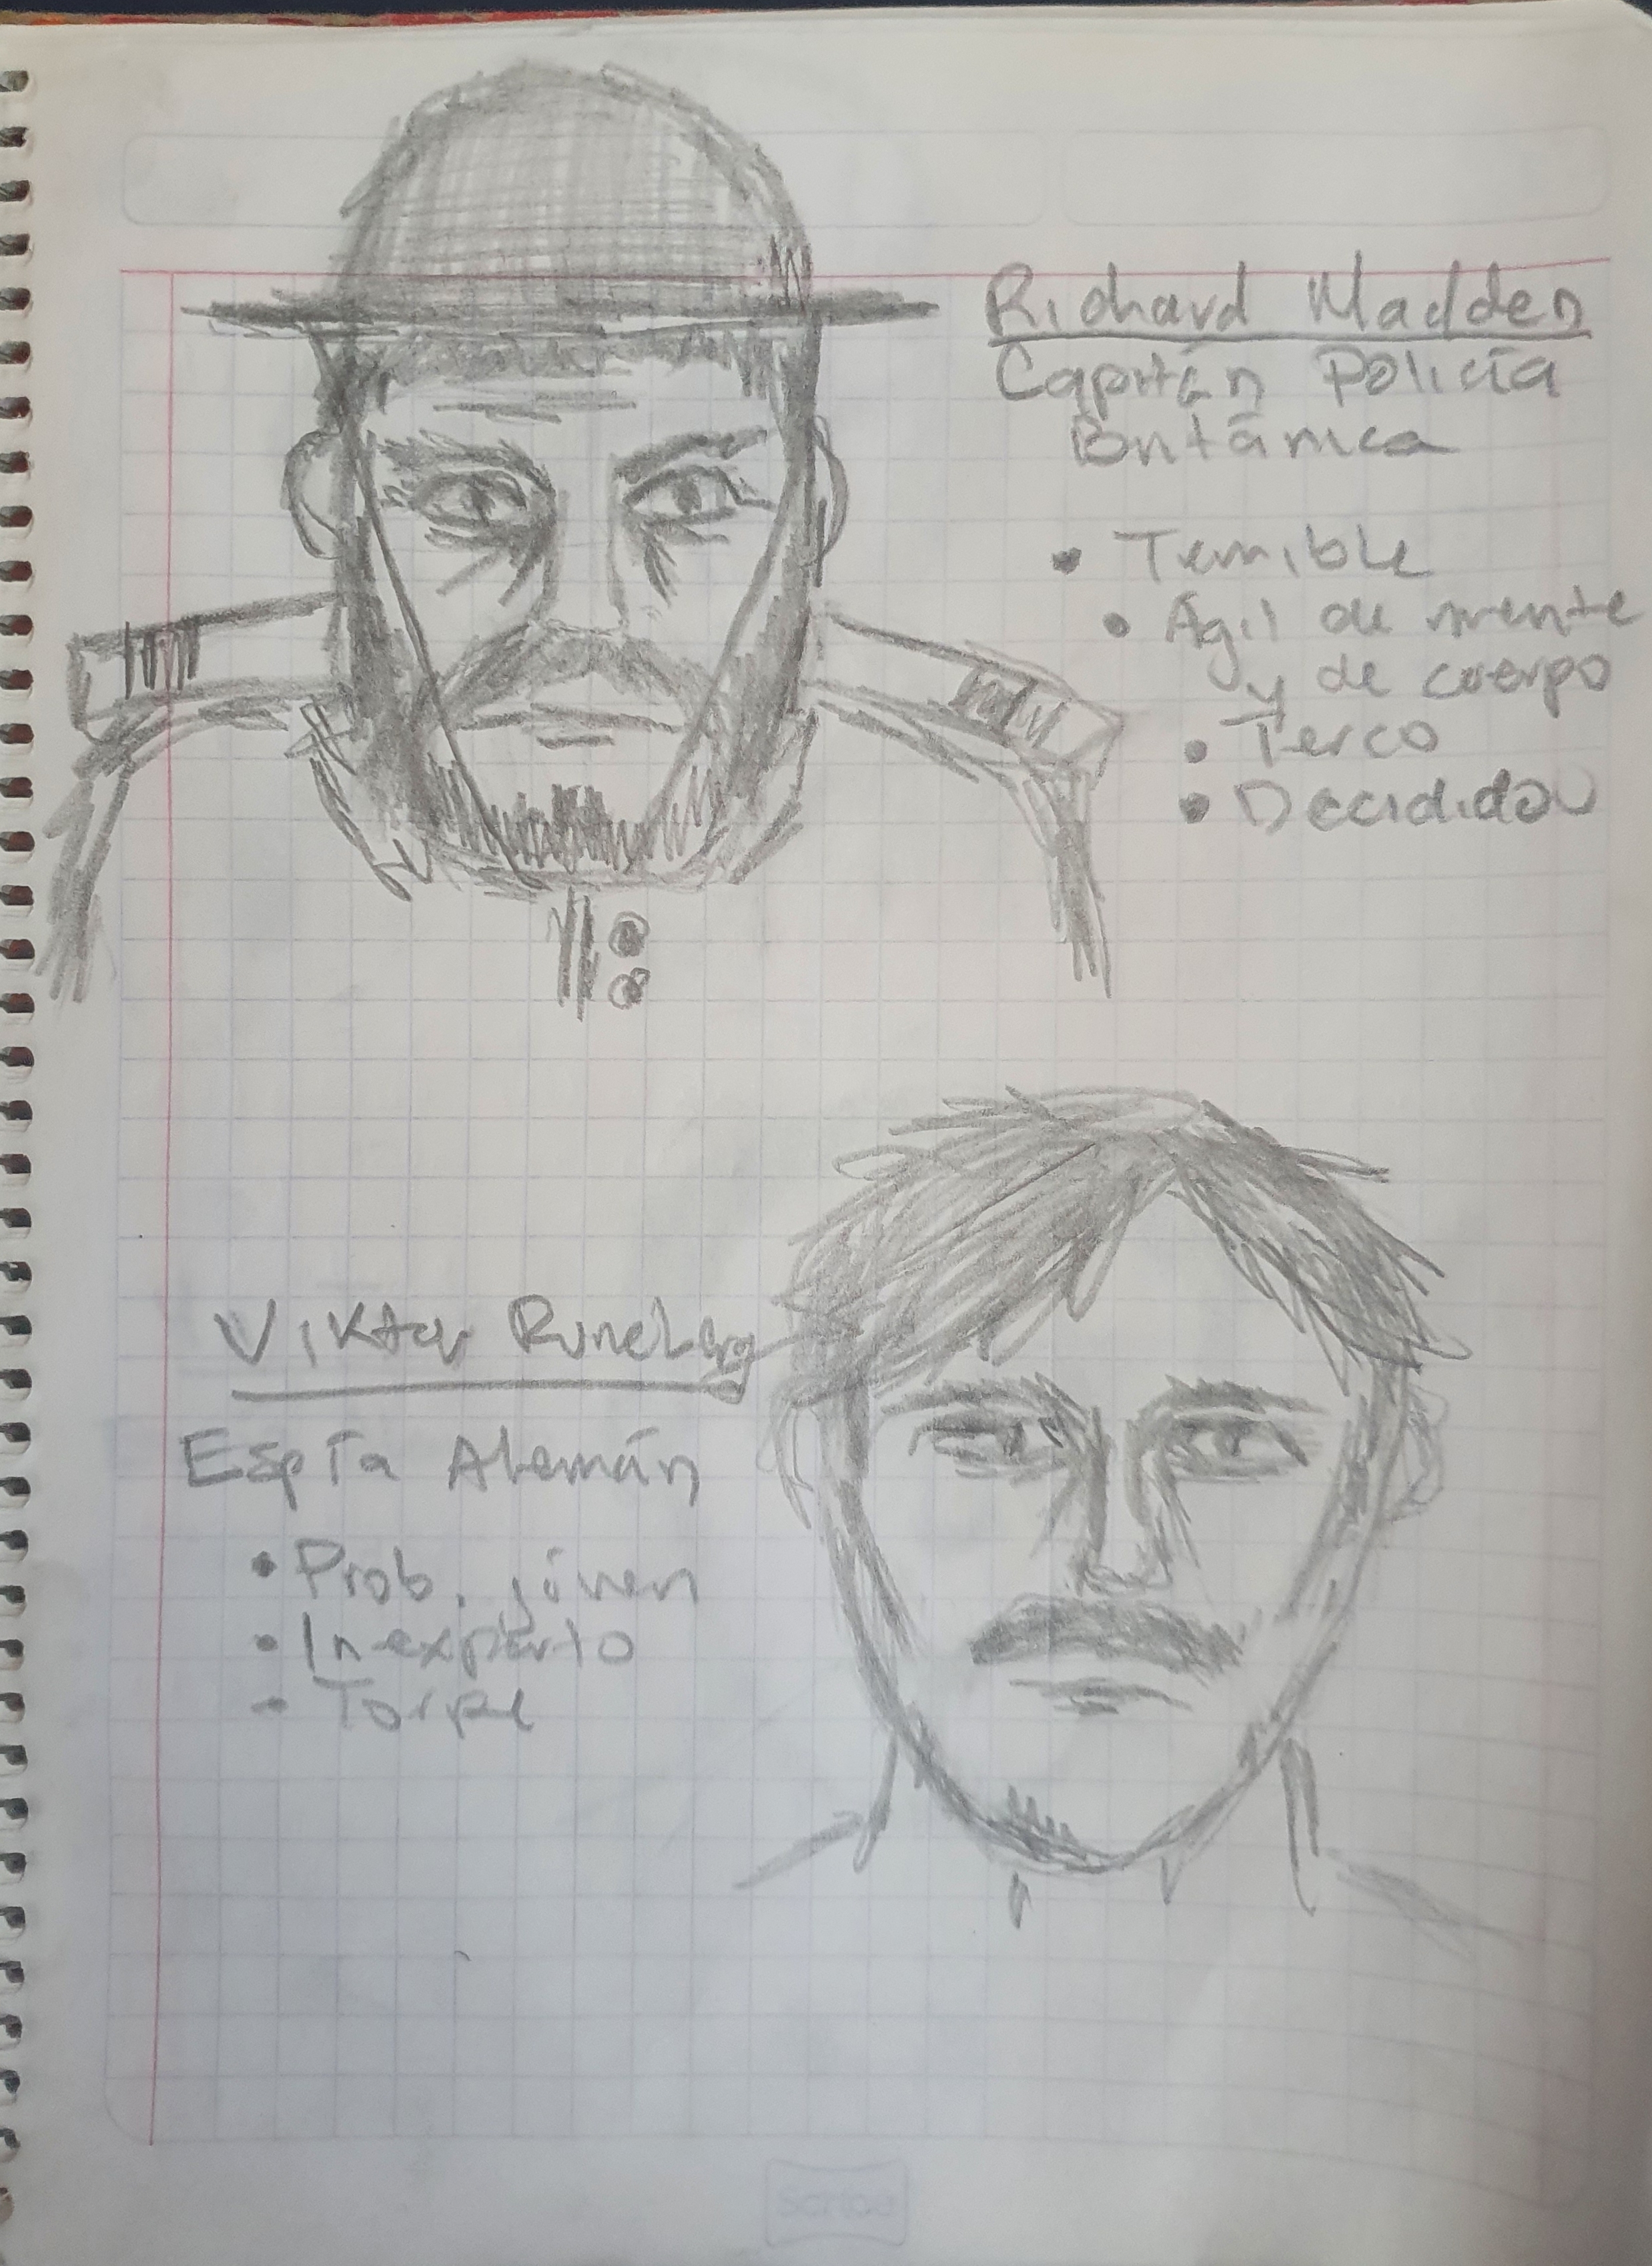 Richard Madden
Capitán Policía
Británica
• Temible
• Ágil de mente
y de cuerpo
• Terco
• Decidido
Viktor Runeberg
Espía Alemán
• Prob. jóven
• Inexperto
- Torpe